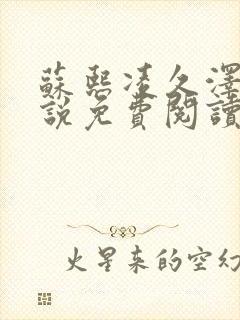 蘇熙凌久澤
說免費閱讀
火星來的空幻